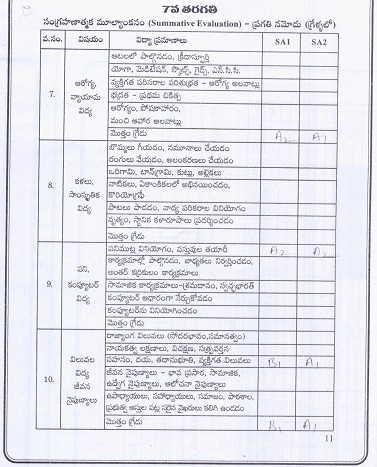 7వ తరగతి
సంగ్రహణాత్మక మూల్యాంకనం (Summative Evaluation) – ప్రగతి నమోదు (గ్రేళ్లలో)
వ.సం. విషయం విద్యా ప్రమాణాలు SA1 SA2
7. ఆరోగ్య, వ్యాయామ విద్య
ఆటలలో పాల్గొనడం, క్రీడాస్ఫూర్తి
యోగా, మెడిటేషన్, స్కౌట్స్, గైడ్స్, ఎన్.సి.సి.
వ్యక్తిగత పరిసరాల పరిశుభ్రత – ఆరోగ్య అలవాట్లు
భద్రత – ప్రథమ చికిత్స
ఆరోగ్యం, పోషణాహారం,
మంచి ఆహార అలవాట్లు
మొత్తం గ్రేడు A2 A1
8. కళలు, సాంస్కృతిక విద్య
బొమ్మలు గీయడం, నమూనాలు చేయడం
రంగులు వేయడం, అలంకరణలు చేయడం
ఒరిగామి, టాన్‌గ్రామ్, కుట్లు, అల్లికలు
నాటికలు, ఏకాంకికలలో అభినయించడం,
కొరియోగ్రఫీ
పాటలు పాడడం, వాద్య పరికరాల వినియోగం
నృత్యం, స్థానిక కళారూపాలు ప్రదర్శించడం
మొత్తం గ్రేడు
9. పని, కంప్యూటర్ విద్య
పనిముట్ల వినియోగం, వస్తువుల తయారీ A2 A2
కార్యక్రమాల్లో పాల్గొనడం, బాధ్యతలు నిర్వర్తించడం,
అంతర్ కార్యక్రమాలు
సామాజిక కార్యక్రమాలు–శ్రమదానం, స్వచ్ఛభారత్
కంప్యూటర్ ఆధారంగా నేర్చుకోవడం
కంప్యూటర్‌ను వినియోగించడం
మొత్తం గ్రేడు
10. విలువల విద్య జీవన నైపుణ్యాలు
రాజ్యాంగ విలువలు (సోదరభావం,సమానత్వం)
నాయకత్వ లక్షణాలు, విచక్షణ, సత్ప్రవర్తన
సహనం, దయ, తదానుభూతి, వ్యక్తిగత విలువలు B1 A1
జీవన నైపుణ్యాలు – భావ ప్రసార, సామాజిక,
ఉద్వేగ నైపుణ్యాలు, ఆలోచనా నైపుణ్యాలు
ఉపాధ్యాయులు, సహాధ్యాయులు, సమాజం, పాఠశాల,
ప్రభుత్వ ఆస్తుల పట్ల సరైన వైఖరులు కలిగి ఉండడం
మొత్తం గ్రేడు B1 A1
11